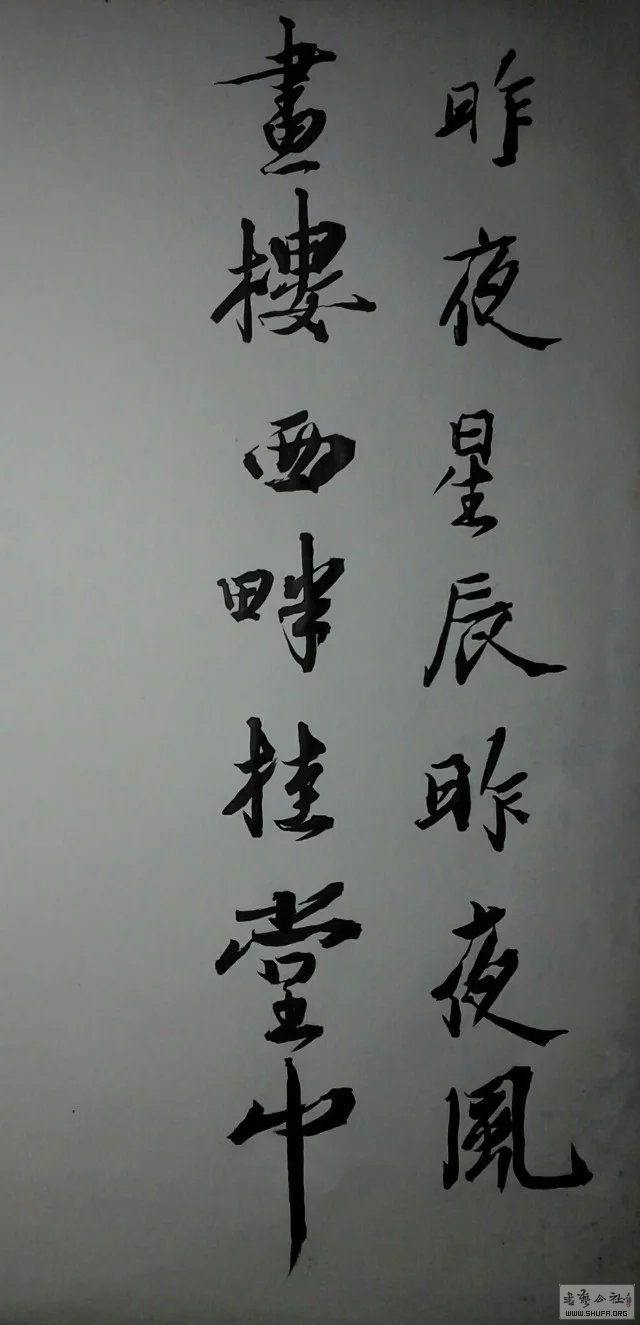 昨夜星辰昨夜風
畫樓西畔桂堂中
书艺公社
WWW.SHUFA.ORG